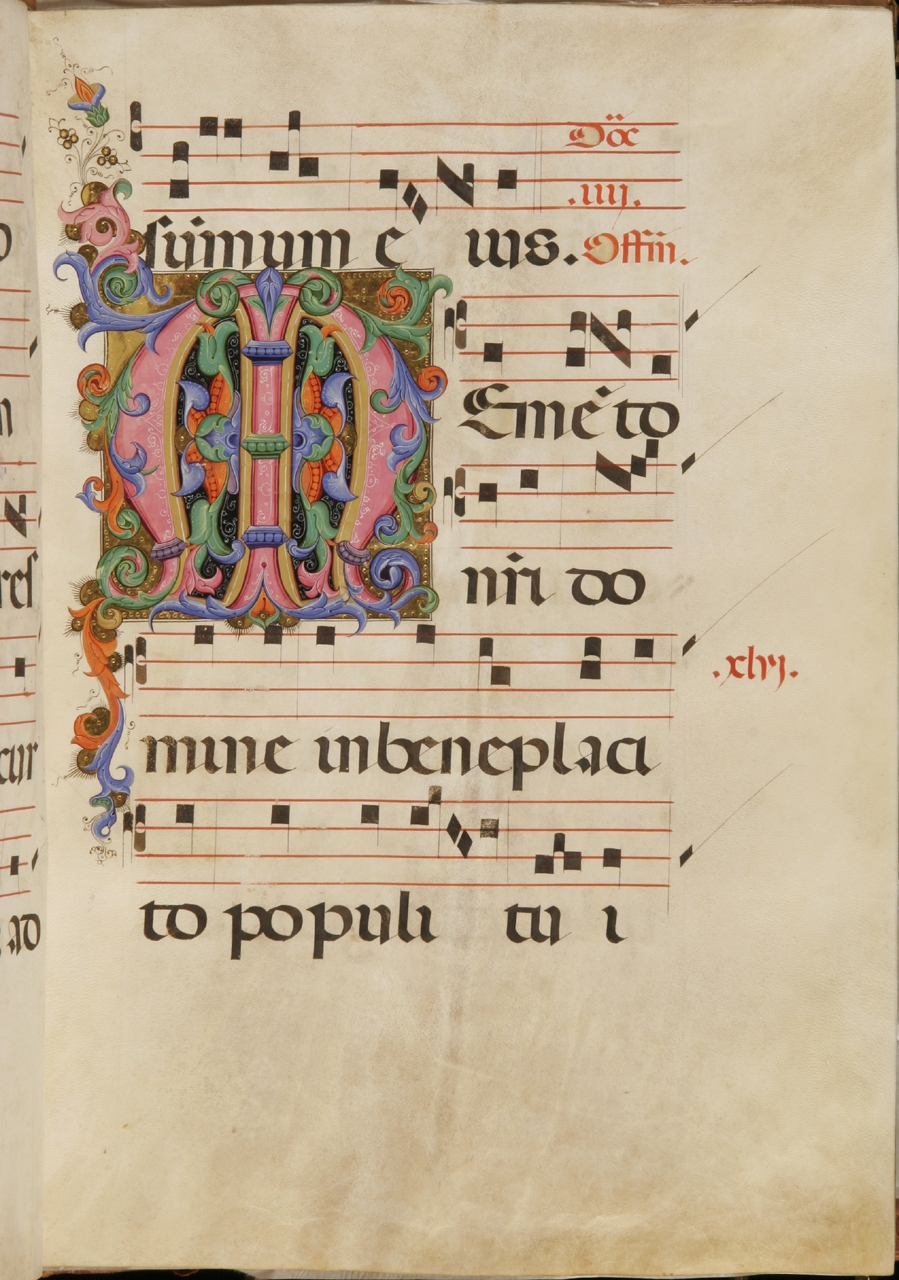 Dōc
.iiij.
simum e ius. Offm̄.
MEmēto
nr̄i do
mine inbeneplaci
.xlvj.
to populi tu i